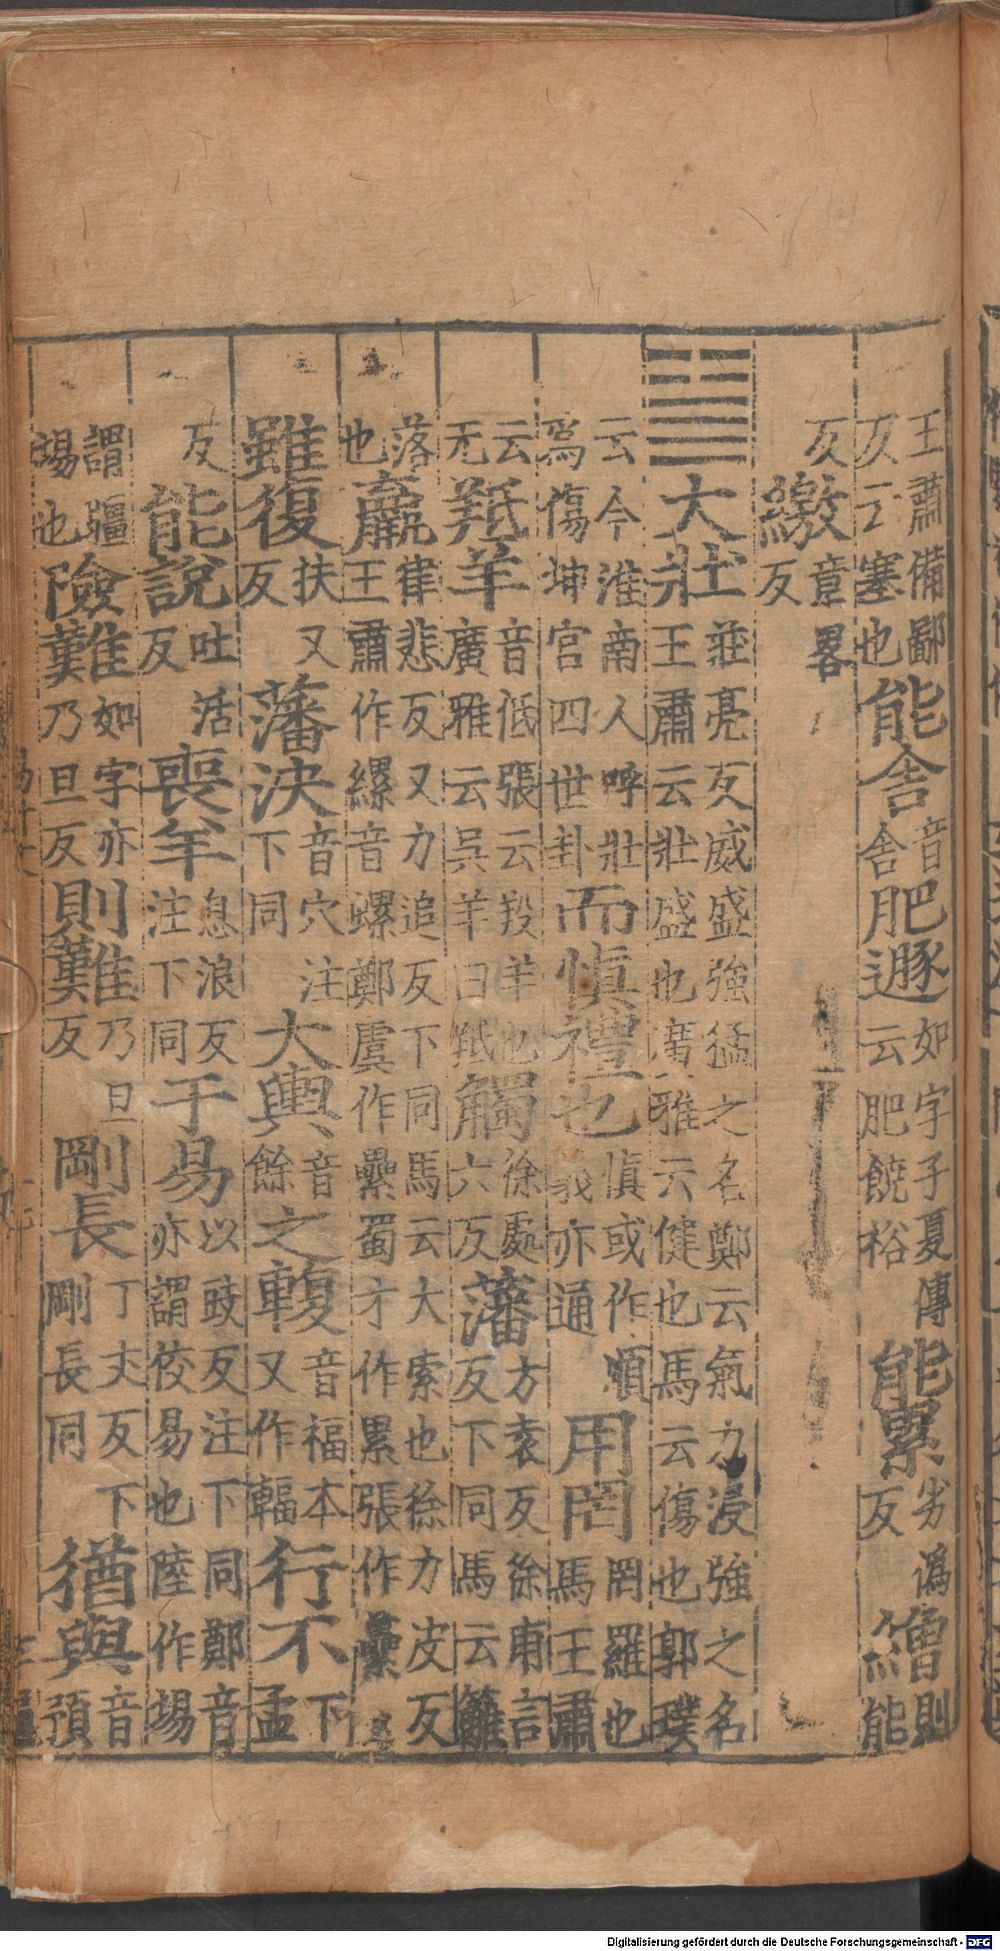 王肅備鄙反云塞也能舍音舍肥遯如字子夏傳云肥饒裕能累劣僞反繒則能
反繳章畧反
䷡大壯莊亮反威盛強猛之名鄭云氣力浸強之名王肅云壯盛也廣雅云健也馬云傷也郭璞
云今淮南人呼壯爲傷坤宫四世卦而慎禮也慎或作順義亦通用罔罔羅也馬王肅
云无羝羊音低張云羖羊也廣雅云吳羊曰羝觸徐處六反藩方袁反徐甫言反下同馬云籬
落也羸律悲反又力追反下同馬云大索也徐力皮反王肅作縲音螺鄭虞作纍蜀才作累張作虆
雖復扶又反藩決音穴注下同大輿音餘之輹音福本又作輻行不下孟
反能說吐活反喪羊息浪反注下同于易以豉反注下同鄭音亦謂佼易也陸作場
謂疆場也險難如字亦乃旦反則難乃旦反剛長丁丈反下剛長同猶與音預
Digitalisierung gefördert durch die Deutsche Forschungsgemeinschaft - DFG